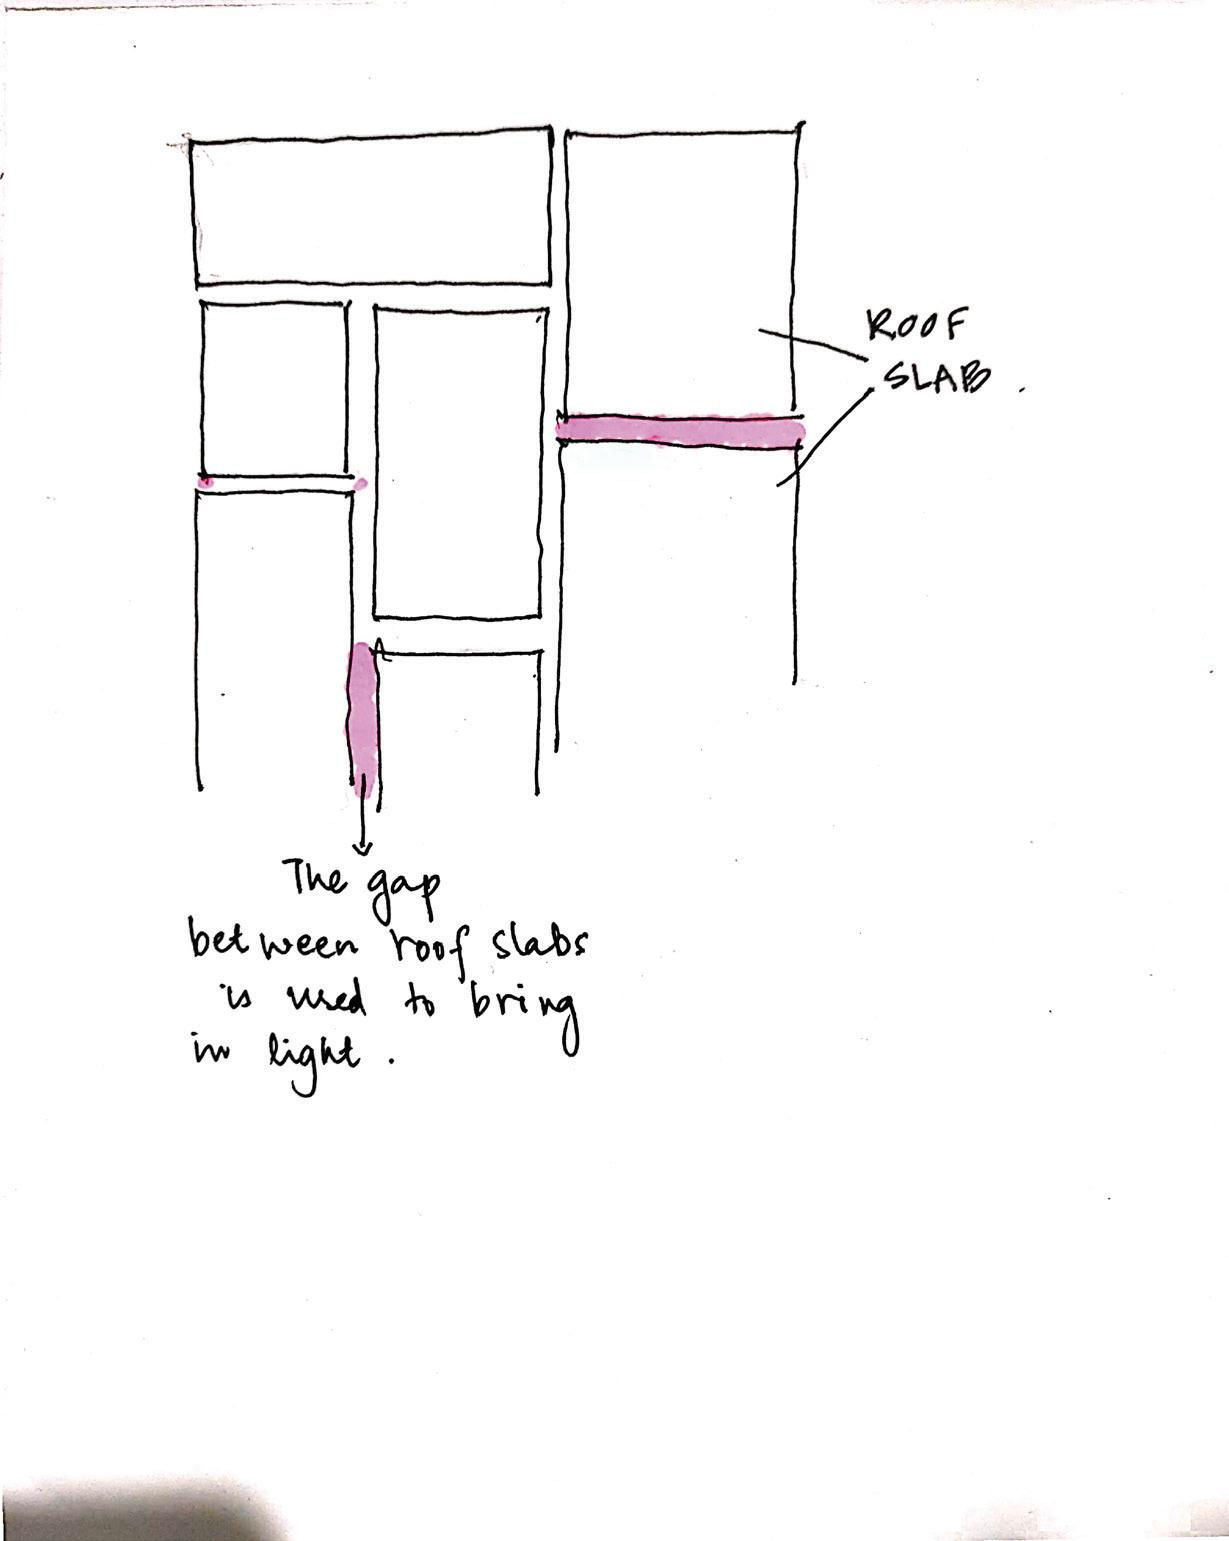 ROOF
SLAB.
The gap
between roof slabs
is used to bring
in light.